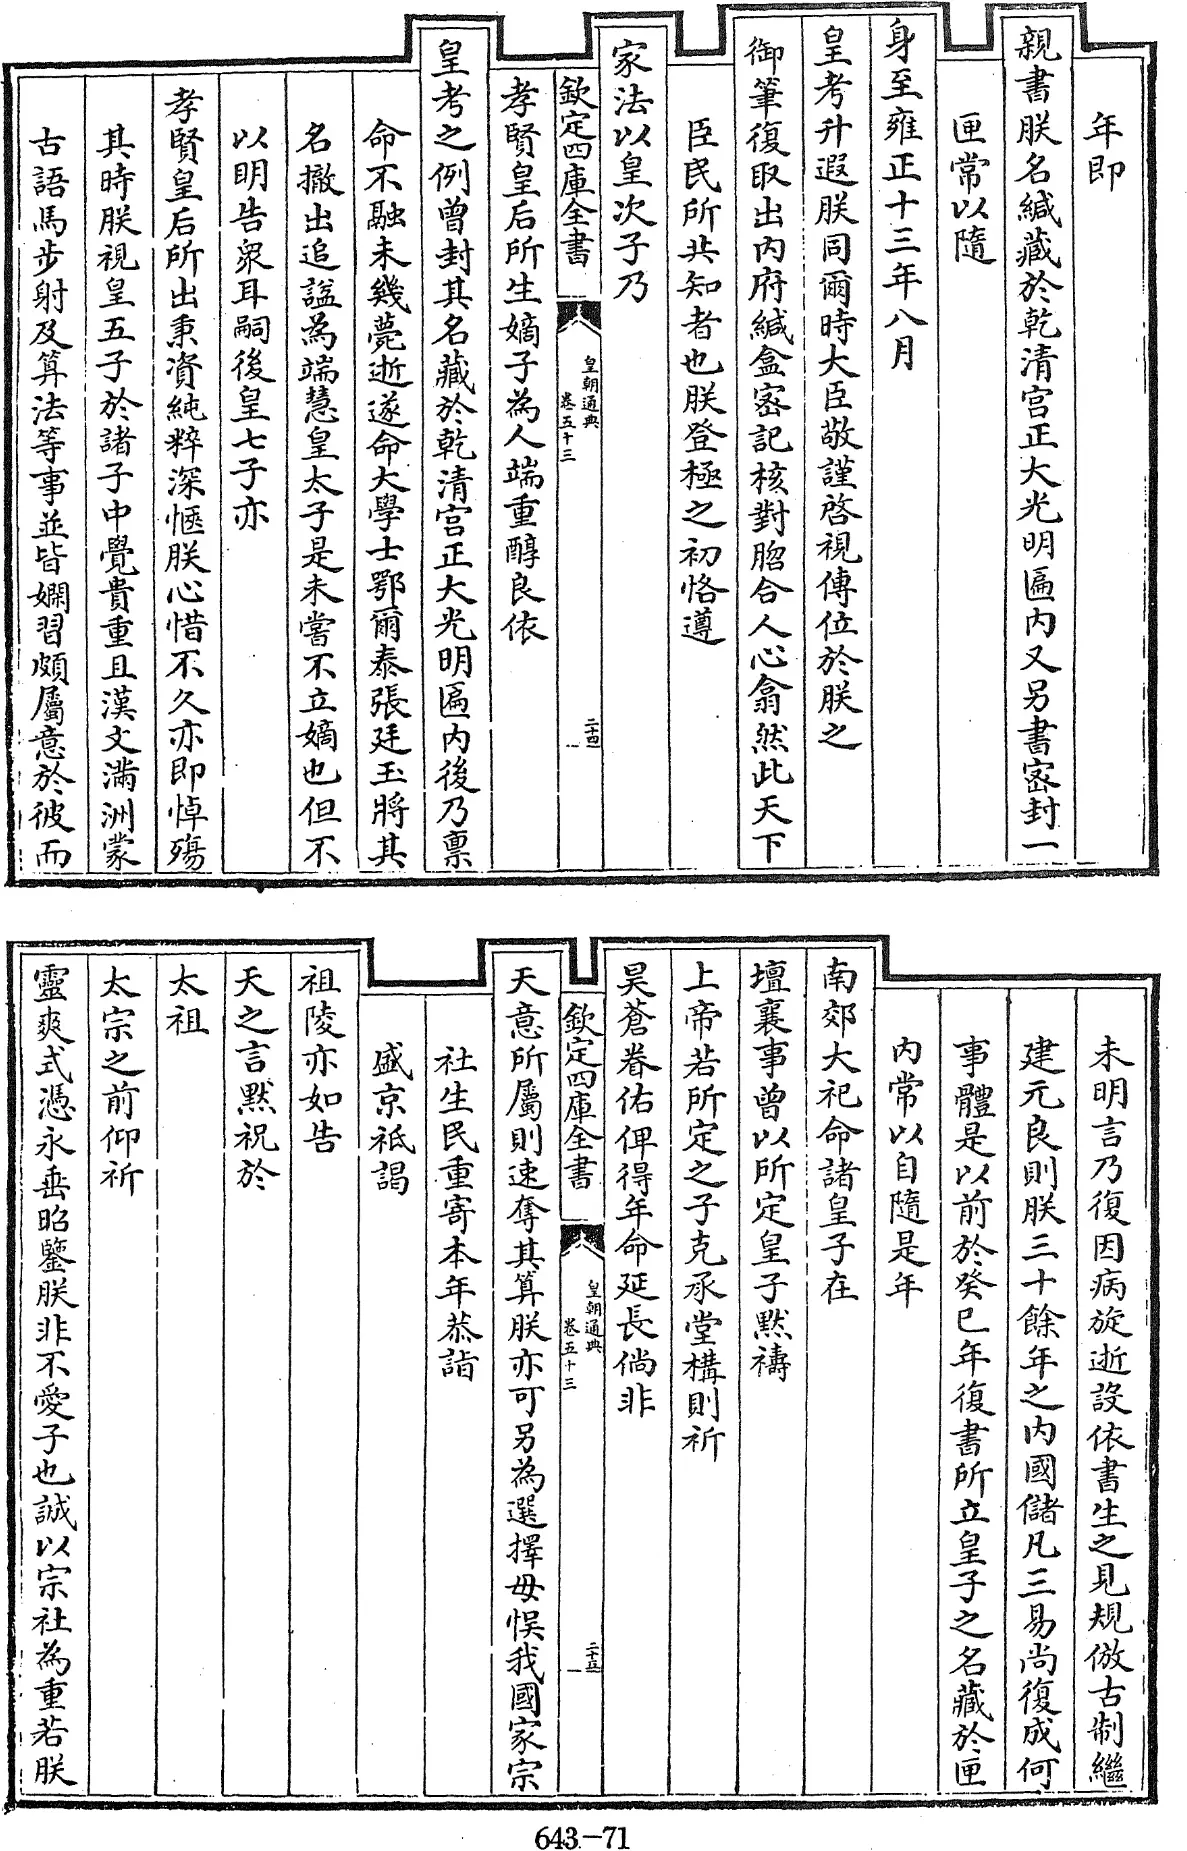 年即
親書朕名緘藏於乾清宮正大光明匾内又另書密封一
匣常以隨
身至雍正十三年八月
皇考升遐朕同爾時大臣敬謹啓視傳位於朕之
御筆復取出内府緘盒密記核對脗合人心翕然此天下
臣民所共知者也朕登極之初恪遵
家法以皇次子乃
欽定四庫全書
皇朝通典
卷五十三
二十四
孝賢皇后所生嫡子為人端重醇良依
皇考之例曾封其名藏於乾清宮正大光明匾内後乃禀
命不融未幾薨逝遂命大學士鄂爾泰張廷玉將其
名撤出追謚為端慧皇太子是未嘗不立嫡也但不
以明告衆耳嗣後皇七子亦
孝賢皇后所出秉資純粹深愜朕心惜不久亦即悼殤
其時朕視皇五子於諸子中覺貴重且漢文滿洲蒙
古語馬步射及算法等事並皆嫻習頗屬意於彼而
未明言乃復因病旋逝設依書生之見規倣古制繼
建元良則朕三十餘年之内國儲凡三易尚復成何
事體是以前於癸巳年復書所立皇子之名藏於匣
内常以自隨是年
南郊大祀命諸皇子在
壇襄事曾以所定皇子黙禱
上帝若所定之子克承堂構則祈
昊蒼眷佑俾得年命延長倘非
欽定四庫全書
皇朝通典
卷五十三
二十五
天意所屬則速奪其算朕亦可另為選擇毋悞我國家宗
社生民重寄本年恭詣
盛京祗謁
祖陵亦如告
天之言黙祝於
太祖
太宗之前仰祈
靈爽式憑永垂昭鑒朕非不愛子也誠以宗社為重若朕
643-71